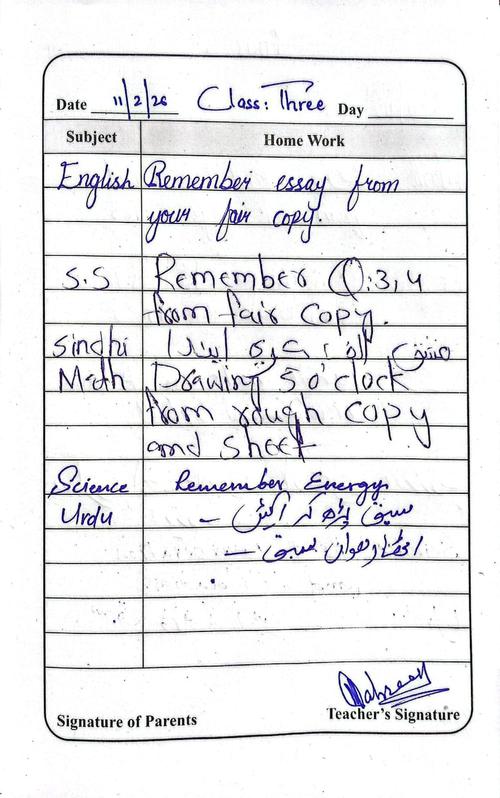 Date 11/2/26 Class: Three Day
Subject Home Work
English Remember essay from
your fair copy.
S.S Remember Q:3,4
from fair copy.
Sindhi مشق الف
Math Drawing 5 o'clock
from rough copy
and sheet
Science Remember Energy
Urdu سبق پڑھ کر آئیں –
اٹھارھواں سبق –
Mahreen
Signature of Parents Teacher's Signature